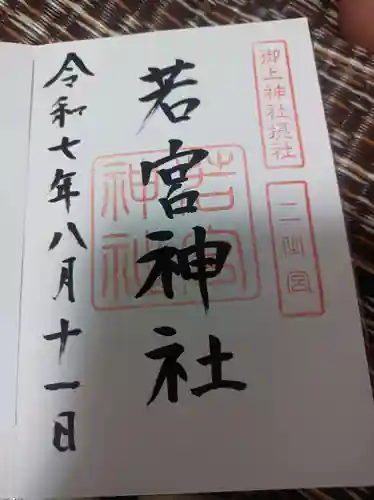 御上神社摂社
二之宮
若宮神社
若宮神社
令和七年八月十一日